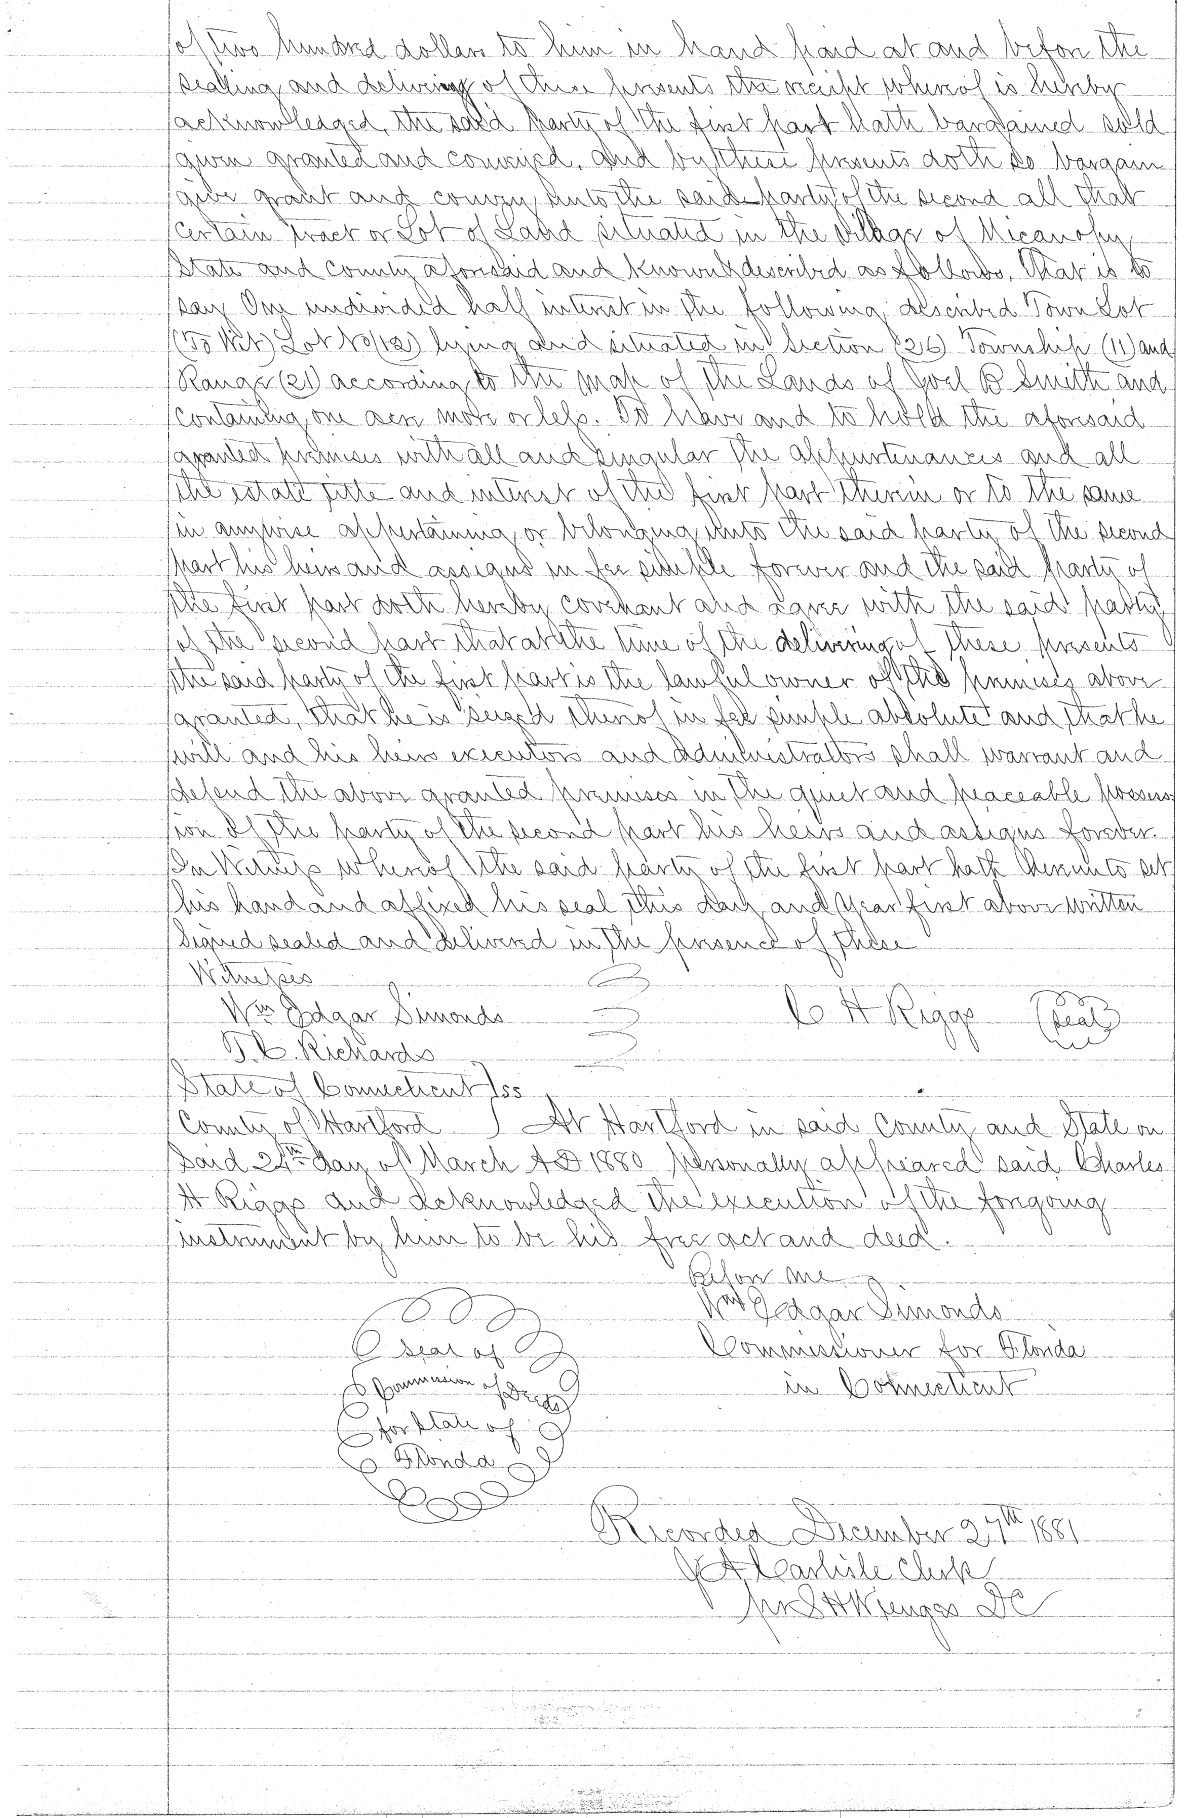 of two hundred dollars to him in hand paid at and before the
sealing and delivering of these presents the receipt whereof is hereby
acknowledged, the said party of the first part hath bargained sold
given granted and conveyed, and by these presents doth so bargain
give grant and convey unto the said party of the second all that
certain tract or Lot of Land situated in the Village of Micanopy
State and county aforesaid and known & described as follows. That is to
say One undivided half interest in the following described Town Lot
(To Wit) Lot No (12) lying and situated in Section (26) Township (11) and
Range (21) according to the map of the Lands of Joel B Smith and
containing one acre more or less. To have and to hold the aforesaid
granted premises with all and singular the appurtenances and all
the estate title and interest of the first part therein or to the same
in anywise appertaining or belonging unto the said party of the second
part his heirs and assigns in fee simple forever and the said party of
the first part doth hereby covenant and agree with the said party
of the second part that at the time of the delivering of these presents
the said party of the first part is the lawful owner of the premises above
granted, that he is seized thereof in fee simple absolute and that he
will and his heirs executors and administrators shall warrant and
defend the above granted premises in the quiet and peaceable possess
ion of the party of the second part his heirs and assigns forever.
In Witness whereof the said party of the first part hath hereunto set
his hand and affixed his seal this day and year first above written
Signed sealed and delivered in the presence of these
Witnesses
Wm Edgar Simonds C H Riggs (seal)
T. C. Richards
State of Connecticut } ss
County of Hartford } At Hartford in said County and State on
said 24th day of March AD 1880 personally appeared said Charles
H Riggs and acknowledged the execution of the foregoing
instrument by him to be his free act and deed.
Before me
Wm Edgar Simonds
Commissioner for Florida
in Connecticut
seal of
Commission of Deeds
for State of
Florida
Recorded December 27th 1881
J A Carlisle Clerk
pr S H Wienges DC